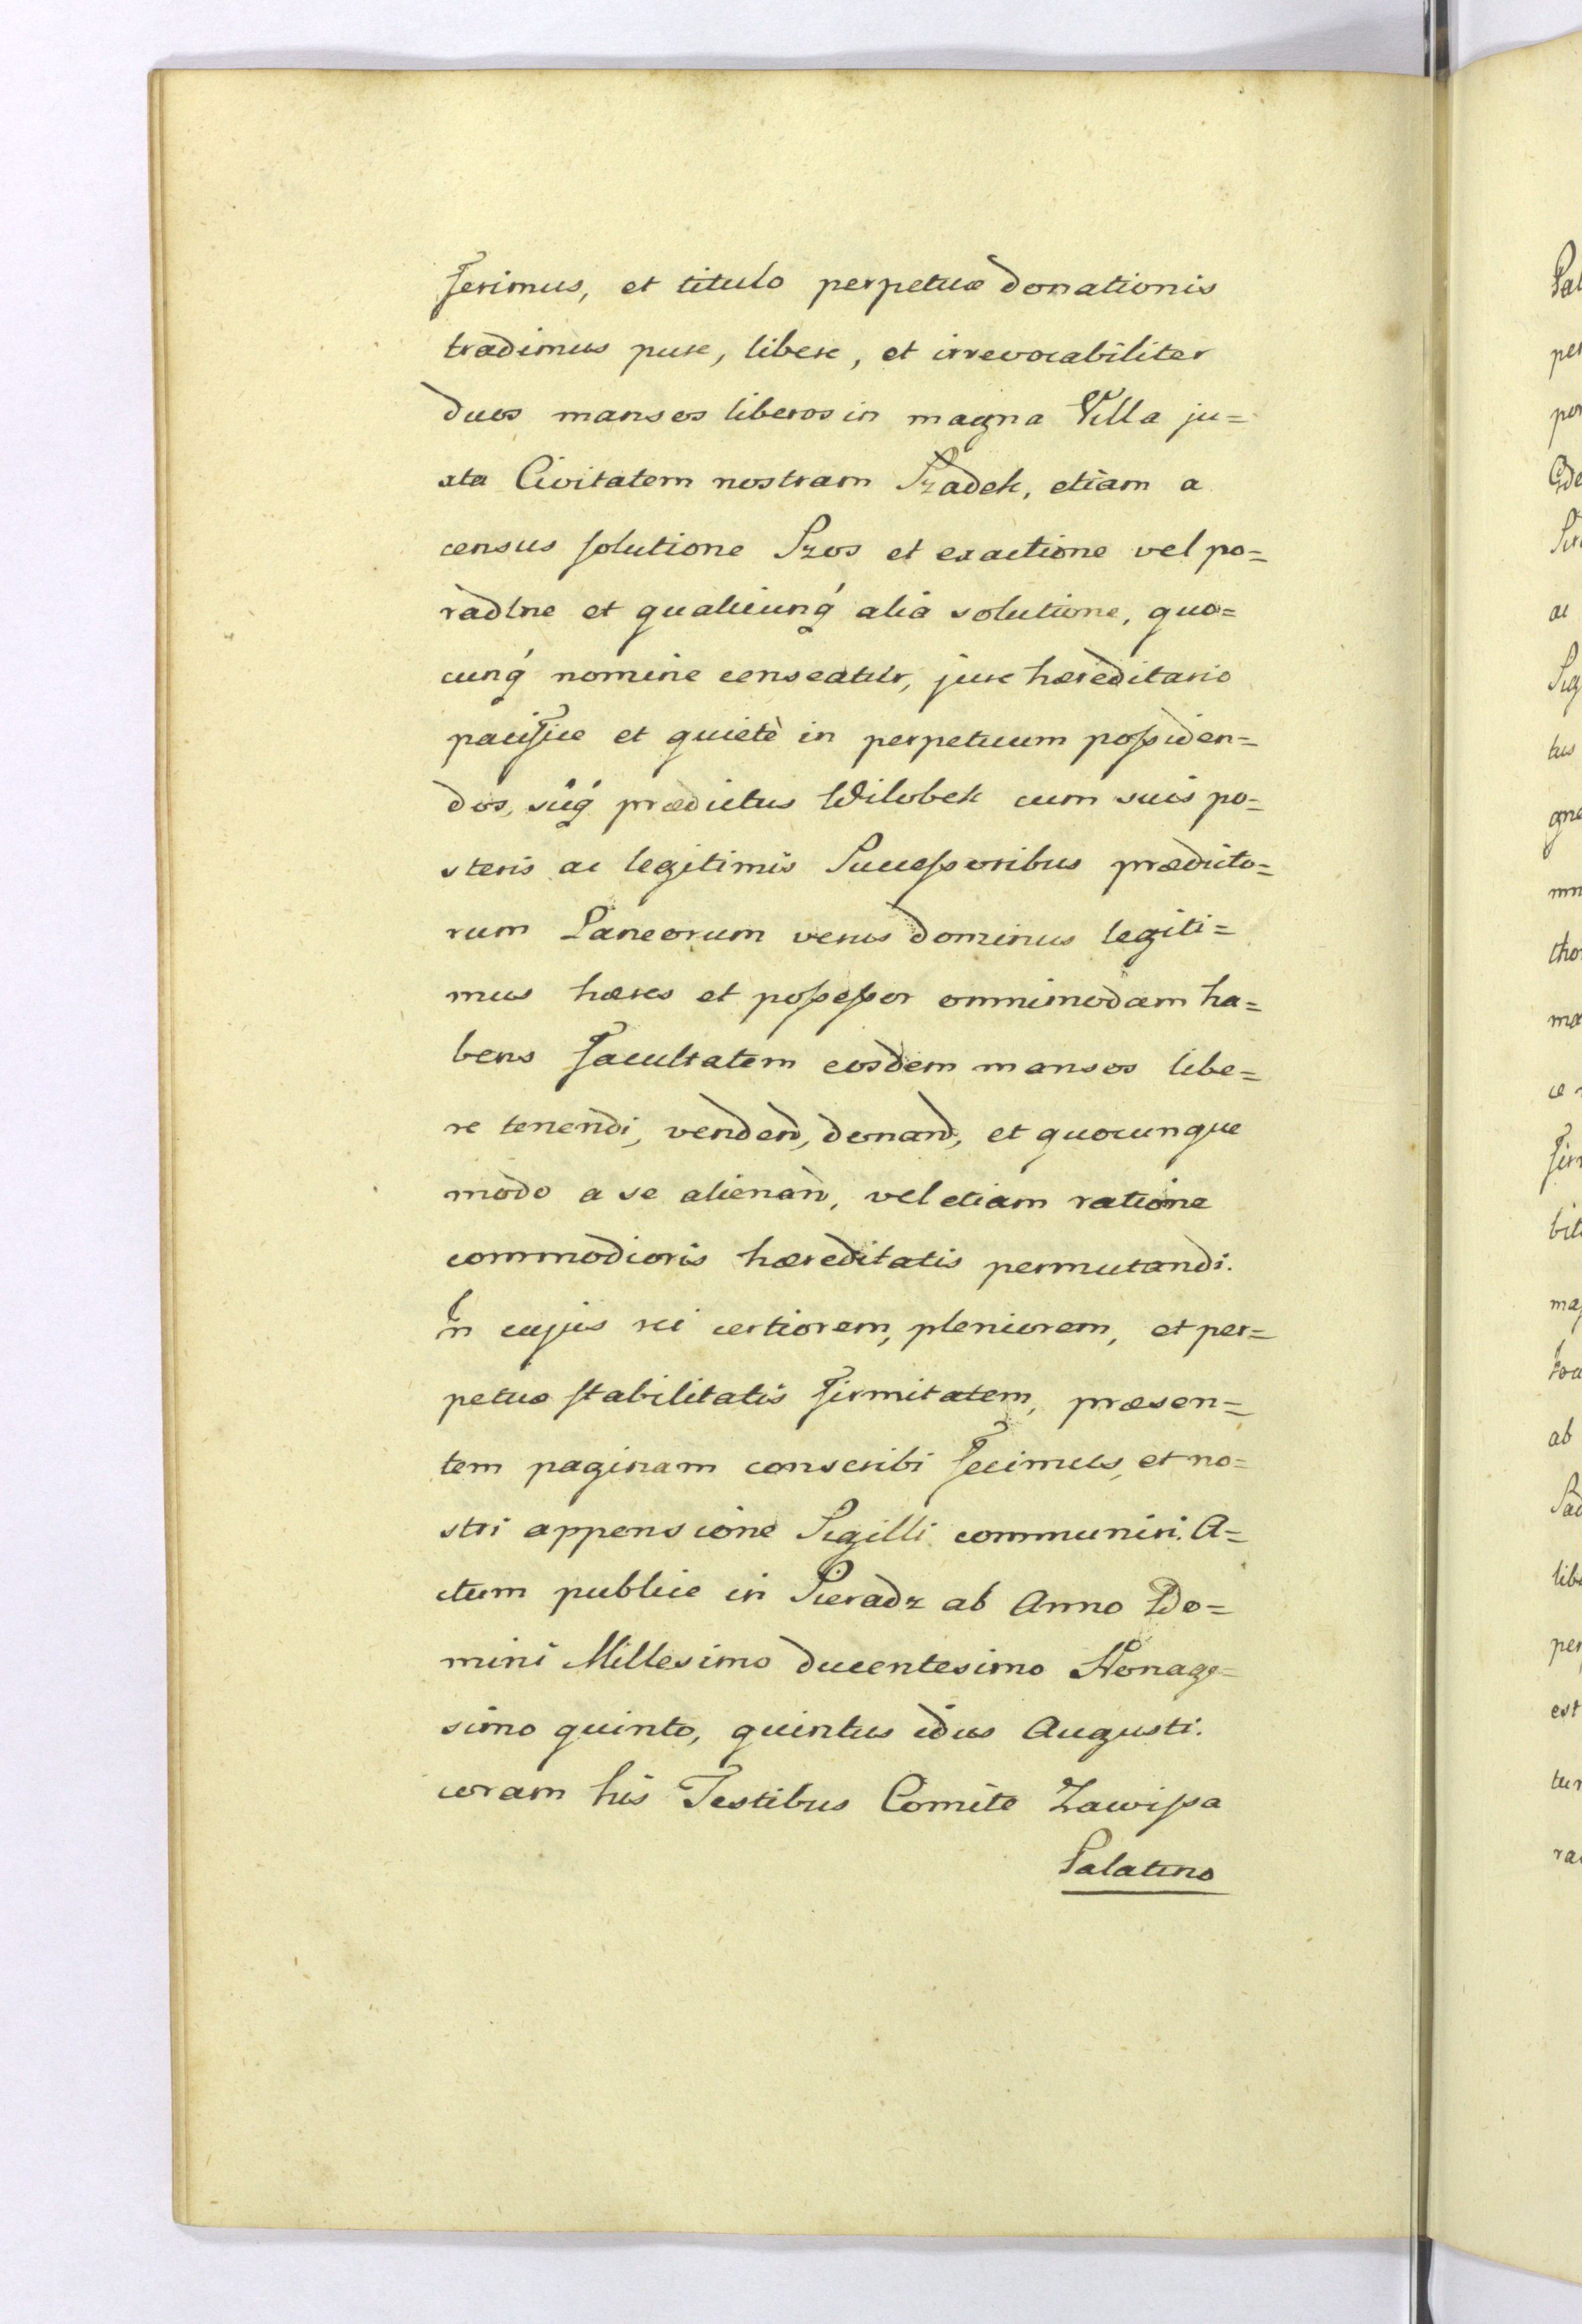 ferimus, et titulo perpetuæ donationis
tradimus pure, libere, et irrevocabiliter
duos mansos liberos in magna Villa ju=
xta Civitatem nostram Szadek, etiam a
census solutione Szos et exactione vel po=
radlne et qualicunq́ alia solutione, quo=
cunq́ nomine censeatur, jure hæreditario
pacifice et quietè in perpetuum possiden=
dos, sitq́ prædictus Wilobek cum suis po=
steris ac legitimis Successoribus prædicto=
rum Laneorum verus dominus legiti=
mus hæres et possessor omnimodam ha=
bens facultatem eosdem mansos libe=
re tenendi, venden̄, donan̄, et quocunque
modo a se alienan̄, vel etiam ratione
commodioris hæreditatis permutandi.
In cujus rei certiorem, pleniorem, et per=
petuæ stabilitatis firmitatem, præsen=
tem paginam conscribi fecimus, et no=
stri appensione Sigilli communiri. A=
ctum publice in Sieradz ab Anno Do=
mini Millesimo ducentesimo Nonage=
simo quinto, quintus idus Augusti.
coram his Testibus Comite Zawissa
Palatino
Pal
per
por
ac
Sig
tus
gne
mn
tho
ma
ce
fir
bit
ma
ab
lib
per
est
tur
ra